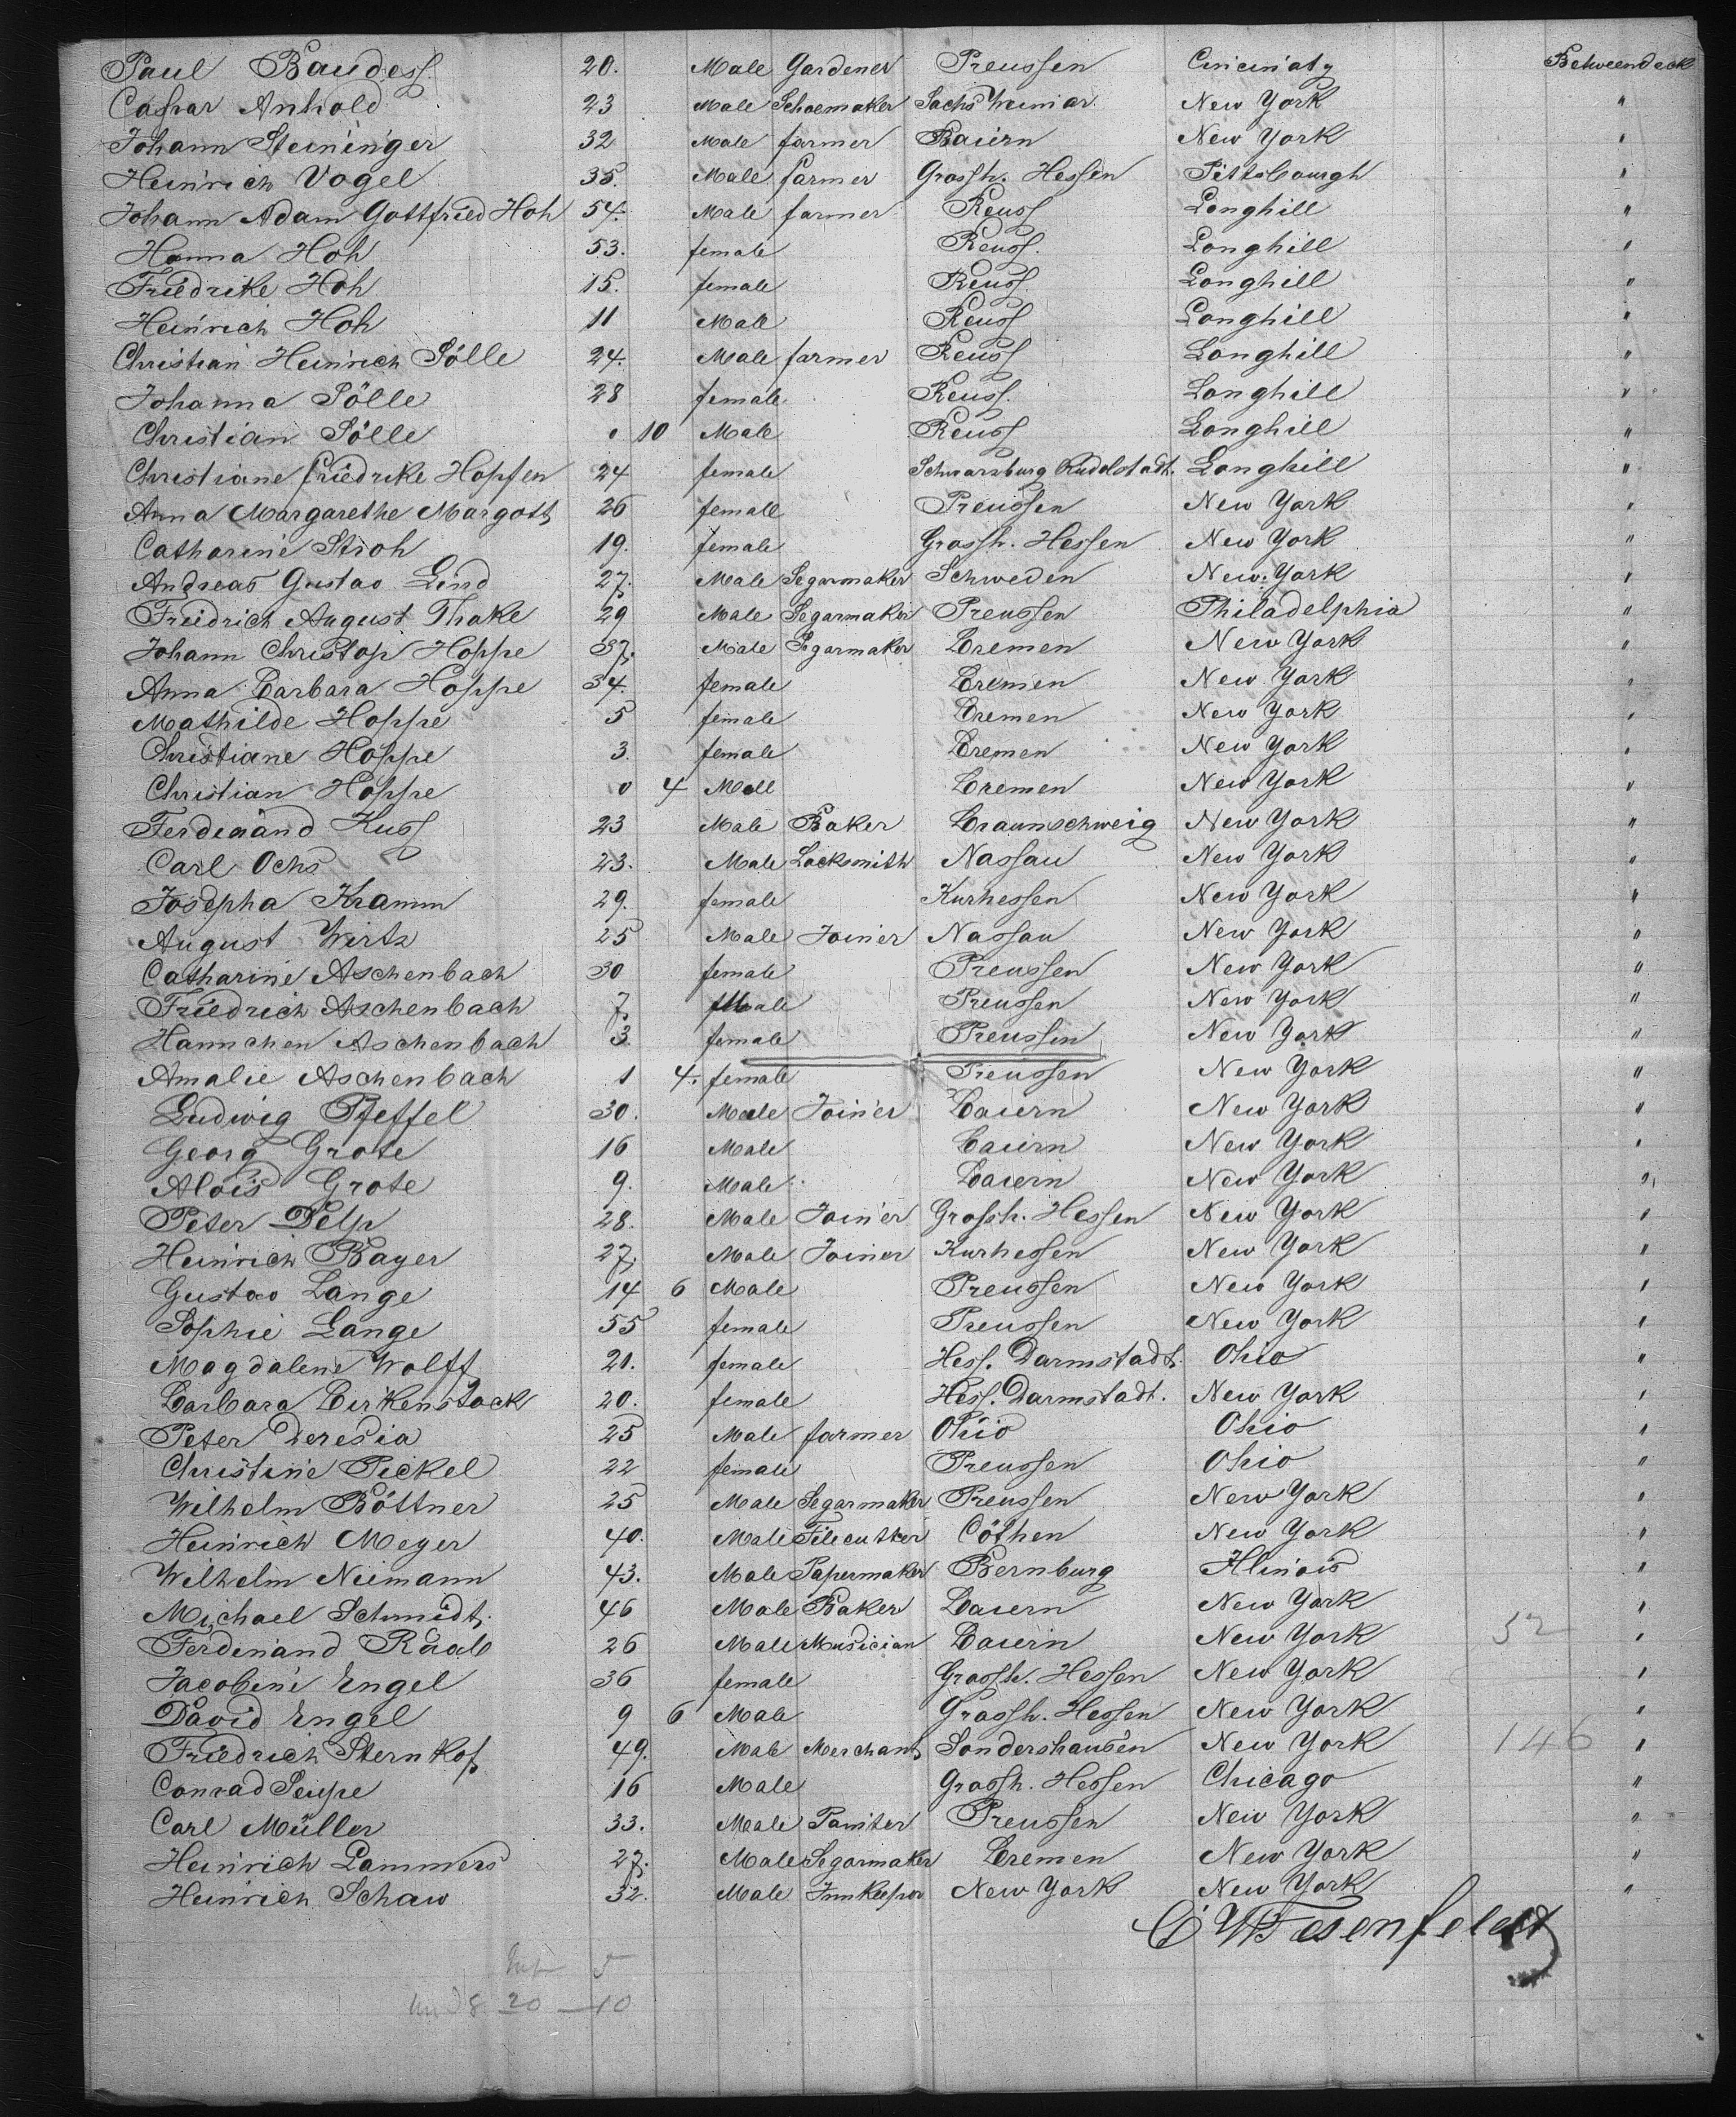 Paul Baudess 20. Male Gardener Preussen Cincinaty Betweendeck
Caspar Anhold 23 Male Schoemaker Sachs Weimar New York "
Johann Steininger 32 Male farmer Baiern New York "
Heinrich Vogel 35. Male farmer Grossh. Hessen Pittsbourgh "
Johann Adam Gottfried Hoh 54. Male farmer Reuss Longhill "
Hanna Hoh 53. female Reuss. Longhill "
Friedrike Hoh 15. female Reuss. Longhill "
Heinrich Hoh 11 Male Reuss Longhill "
Christian Heinrich Sölle 24. Male farmer Reuss Longhill "
Johanna Sölle 28 female Reuss. Longhill "
Christian Sölle 0 10 Male Reuss Longhill "
Christiane friedrike Hopfen 24 female Schwarzburg Rudolstadt. Longhill "
Anna Margarethe Margott 26 female Preussen New York "
Catharine Stroh 19. female Grossh. Hessen New York "
Andreas Gustav Lind 27. Male Segarmaker Schweden New York "
Friedrich August Thake 29 Male Segarmaker Preussen Philadelphia "
Johann Christop Hoppe 37. Male Segarmaker Bremen New York "
Anna Barbara Hoppe 34. female Bremen New York "
Mathilde Hoppe 5 female Bremen New York "
Christiane Hoppe 3. female Bremen New York "
Christian Hoppe 0 4 Male Bremen New York "
Ferdinand Kuss 23 Male Baker Braunschweig New York "
Carl Ochs 23. Male Locksmith Nassau New York "
Josepha Kramm 29. female Kurhessen New York "
August Wirtz 25 Male Joiner Nassau New York "
Catharine Aschenbach 30 female Preussen New York "
Friedrich Aschenbach 7. Male Preussen New York "
Hannchen Aschenbach 3. female Preussen New York "
Amalie Aschenbach 1 4. female Preussen New York "
Ludwig Pfeffel 30. Male Joiner Baiern New York "
Georg Grote 16 Male Baiern New York "
Alois Grote 9. Male Baiern New York "
Peter Delp 28. Male Joiner Grossh. Hessen New York "
Heinrich Bayer 27. Male Joiner Kurhessen New York "
Gustav Lange 14 6 Male Preussen New York "
Sophie Lange 55 female Preussen New York "
Magdalene Wolff 21. female Hess. Darmstadt. Ohio "
Barbara Birkenstock 20. female Hess. Darmstadt. New York "
Peter Deresia 25 Male farmer Ohio Ohio "
Christine Pickel 22 female Preussen Ohio "
Wilhelm Böttner 25 Male Segarmaker Preussen New York "
Heinrich Meyer 40. Male Filecutter Cöthen New York "
Wilhelm Niemann 43. Male Papermaker Bernburg Illinois "
Michael Schmidt. 46 Male Baker Baiern New York "
Ferdinand Raab 26 Male Musician Baiern New York 52 "
Jacobine Engel 36 female Grossh. Hessen New York "
David Engel 9 6 Male Grossh. Hessen New York "
Friedrich Sternkopf 49. Male Merchant Sondershausen New York 146 "
Conrad Seipe 16 Male Grossh. Hessen Chicago "
Carl Müller 33. Male Painter Preussen New York "
Heinrich Lammers 27. Male Segarmaker Bremen New York "
Heinrich Schaw 32. Male Innkeeper New York New York "
5
8 20 — 10